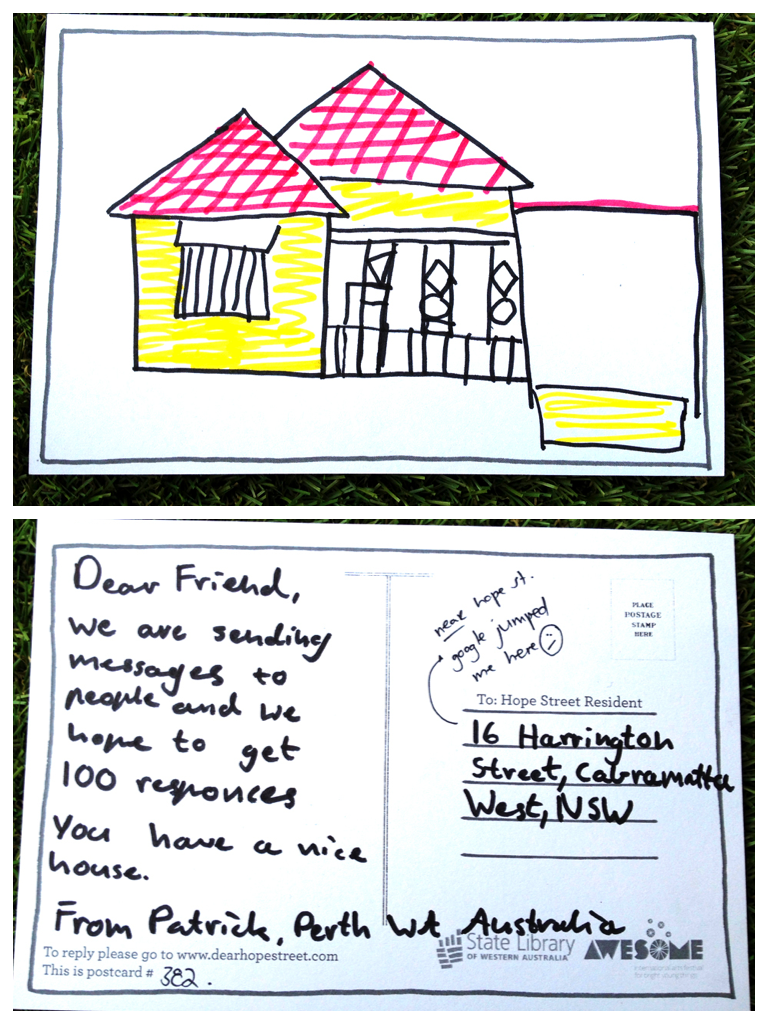 Dear Friend,
we are sending
messages to
people and we
hope to get
100 responces
You have a nice
house.
From Patrick, Perth WA Australia
To reply please go to www.dearhopestreet.com
This is postcard # 382.
near hope st.
google jumped
me here
PLACE
POSTAGE
STAMP
HERE
To: Hope Street Resident
16 Harrington
Street, Cabramatta
West, NSW
State Library
OF WESTERN AUSTRALIA
AWESOME
international arts festival
for bright young things